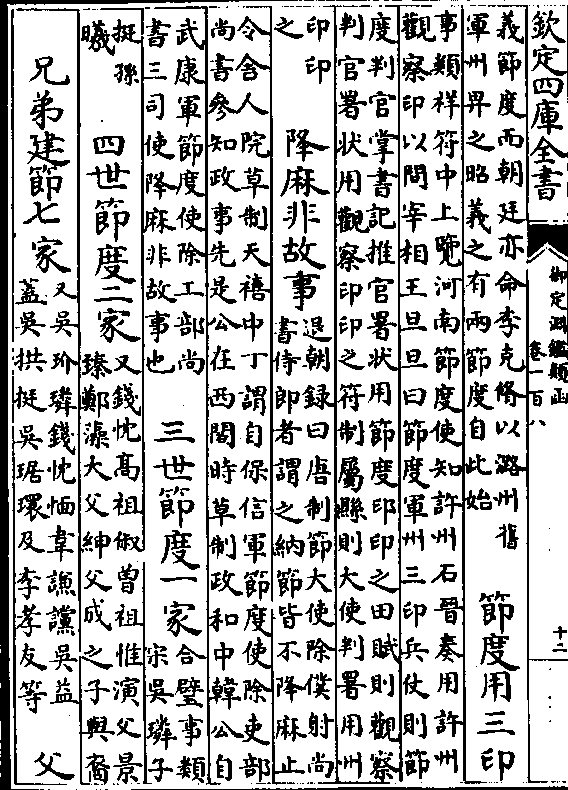 欽定四庫全書
御定淵鑑類函
卷一百八
十二
義節度而朝廷亦命李克脩以潞州舊
軍州畀之昭義之有兩節度自此始
節度用三印
事類祥符中上覽河南節度使知許州石晉奏用許州
觀察印以問宰相王旦旦曰節度軍州三印兵仗則節
度判官掌書記推官署狀用節度印印之田賦則觀察
判官署狀用觀察印印之符制屬縣則大使判署用州
印印
之
降麻非故事
退朝録曰唐制節大使除僕射尚
書侍郎者謂之納節皆不降麻止
令舍人院草制天禧中丁謂自保信軍節度使除吏部
尚書參知政事先是公在西閣時草制政和中韓公自
武康軍節度使除工部尚
書三司使降麻非故事也
三世節度一家
合璧事類
宋吳璘子
挺孫
曦
四世節度二家
又錢忱高祖俶曾祖惟演父景
臻鄭藻大父紳父成之子興裔
兄弟建節七家
又吳玠璘錢忱愐韋謙讜吳益
蓋吳拱挺吳琚環及李孝友等
父